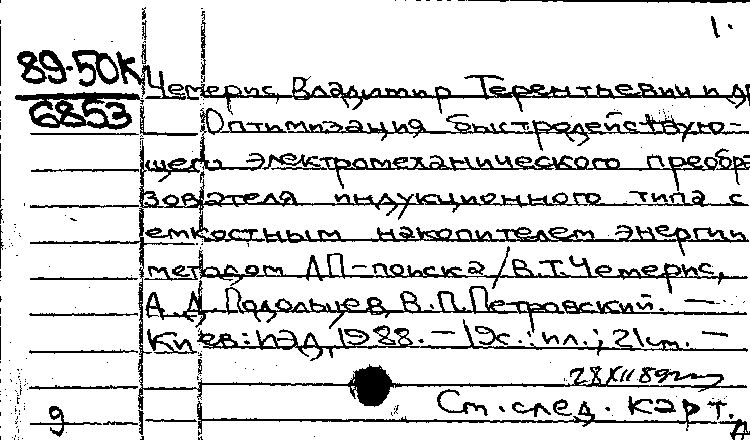 1.
89-50К
6853
Чемерис, Владимир Терентьевич и др
Оптимизация быстродействую-
щего электромеханического преобра
зователя индукционного типа с
емкостным накопителем энергии
методом ЛП-поиска / В.Т.Чемерис,
А.Д. Подольцев, В.П.Петровский. —
Киев: ИЭД, 1988. — 19с.: ил.; 21см. —
28XII89
См. след. карт.
9